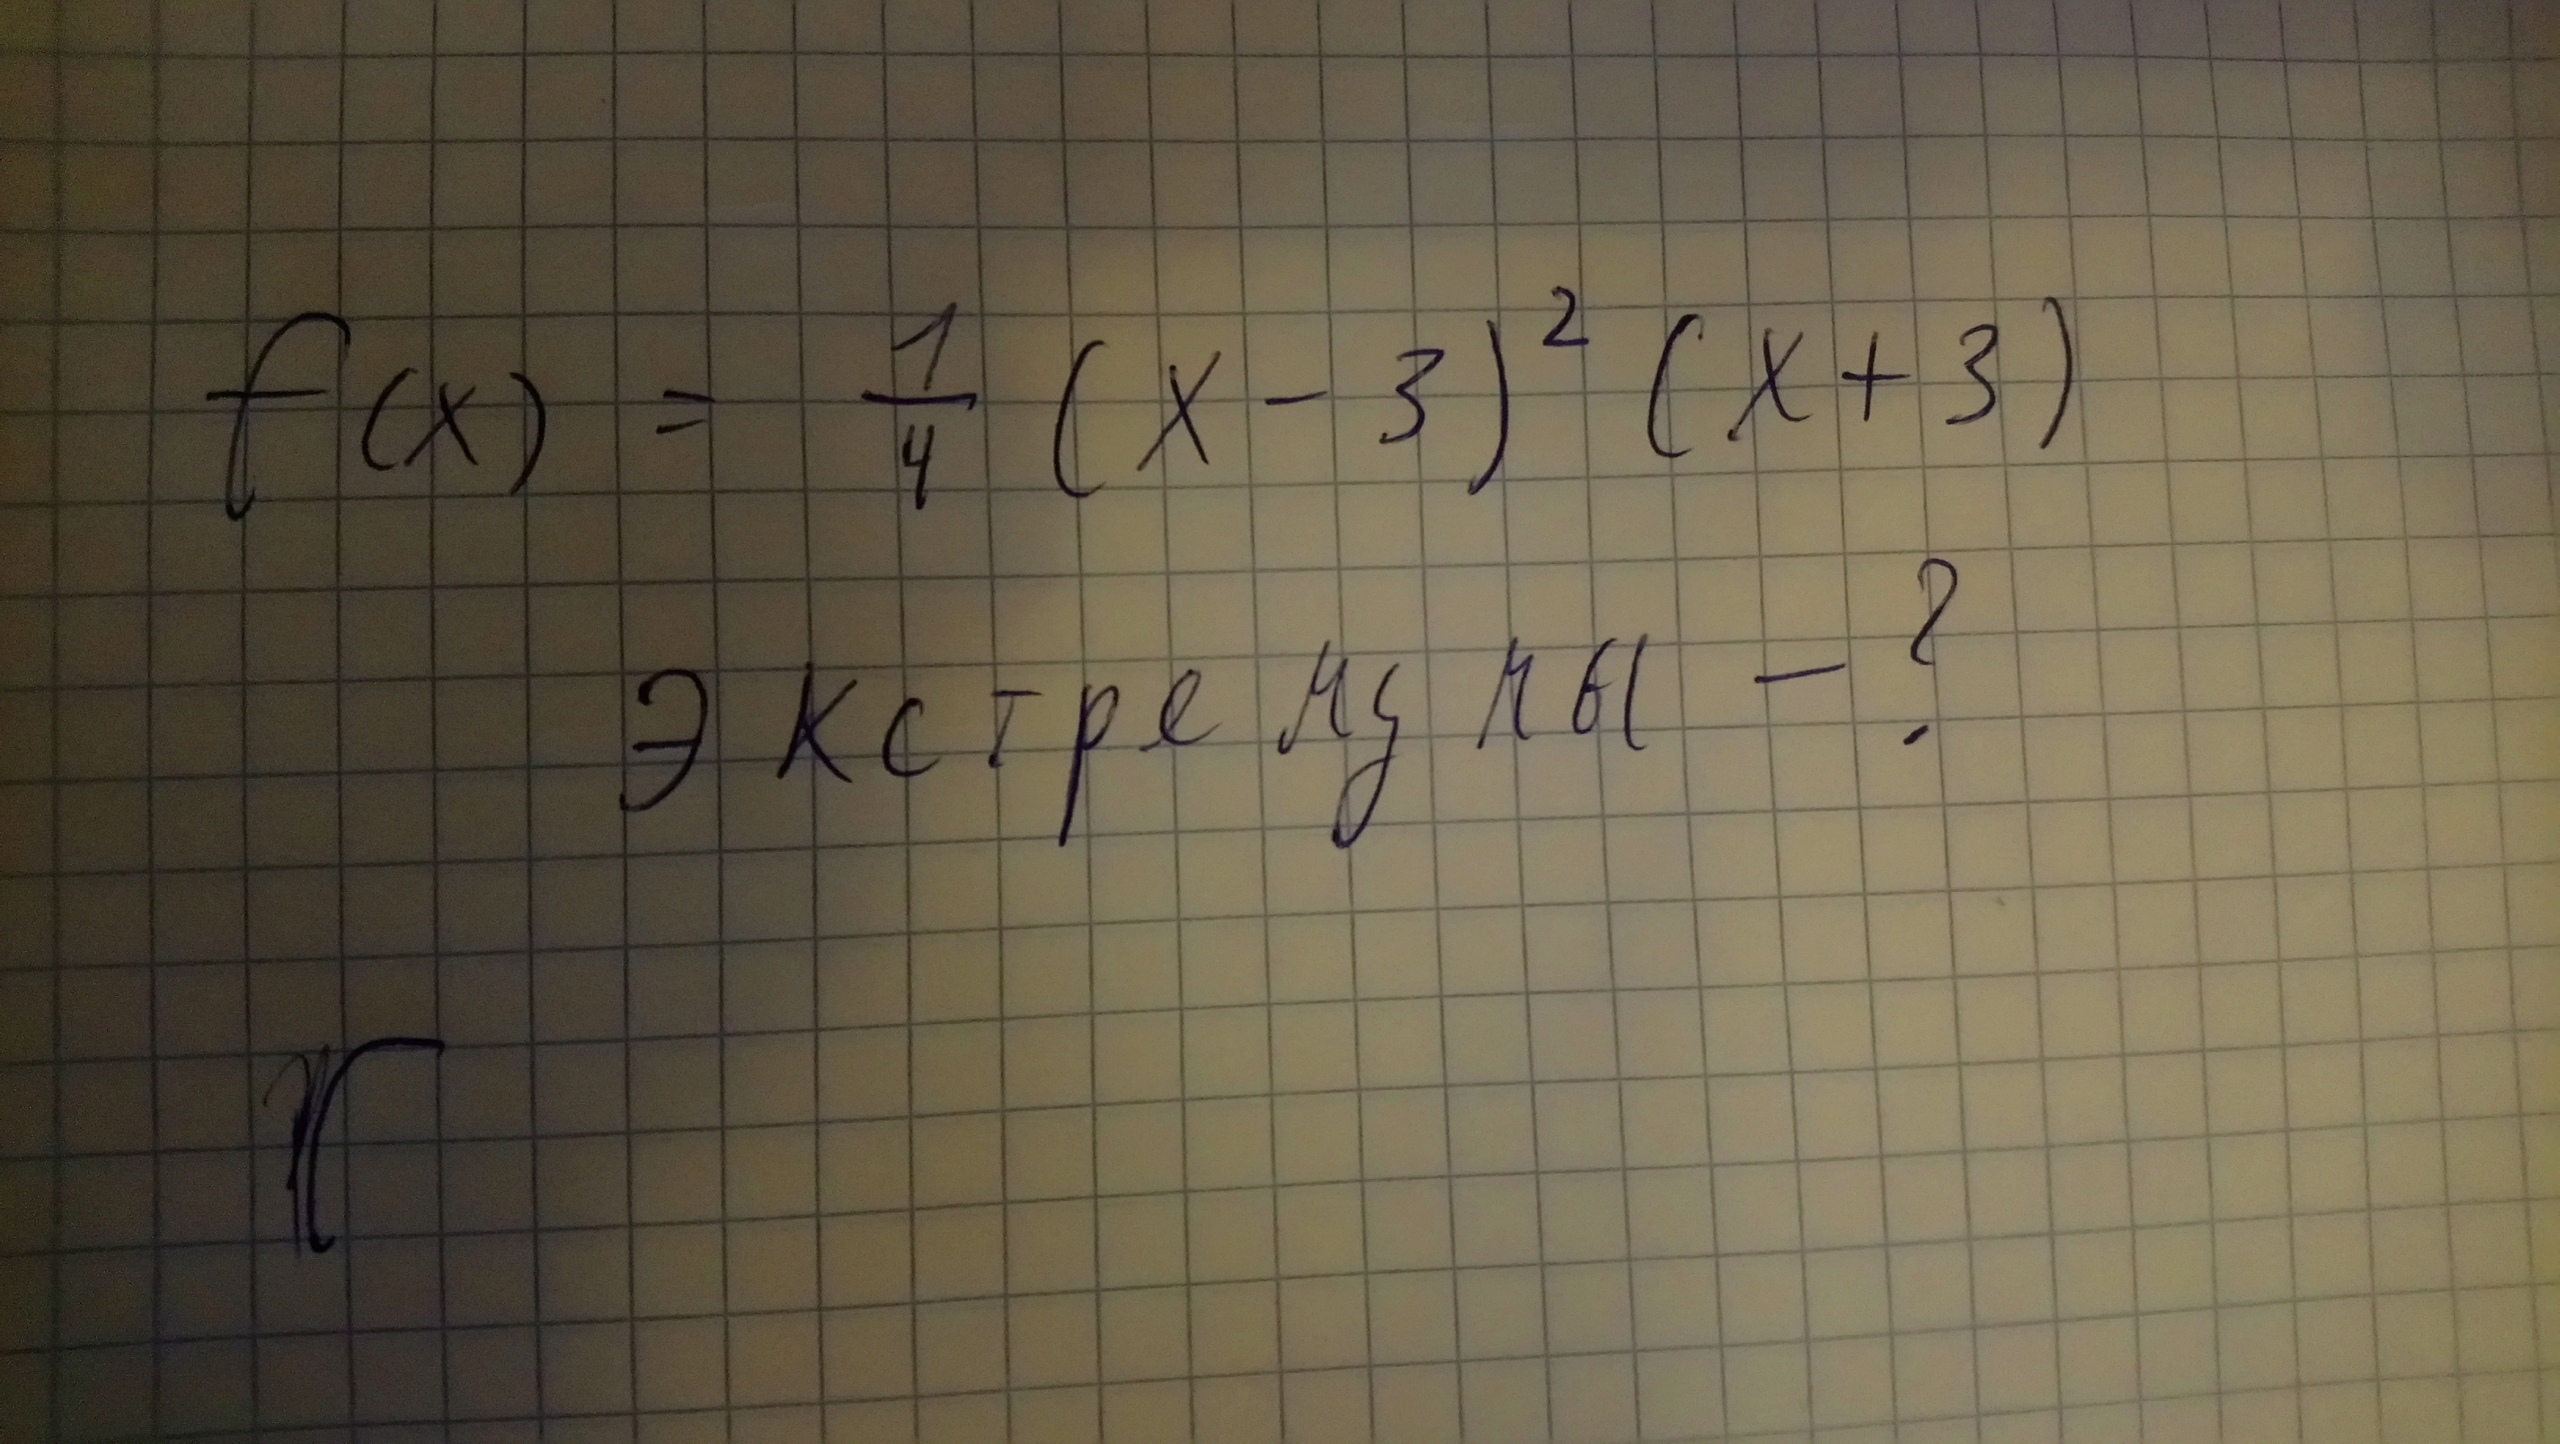 f(x) = 1/4 (x - 3)² (x + 3)
Экстремумы - ?